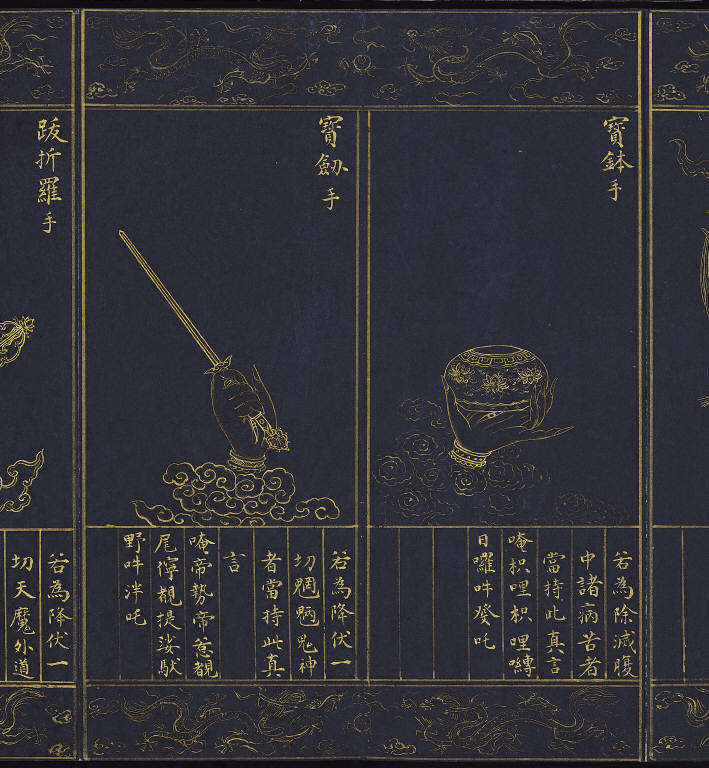 寶鉢手
若為除滅腹
中諸病苦者
當持此真言
唵枳哩枳哩嚩
日囉吽癹吒
寶劔手
若為降伏一
切魍魎鬼神
者當持此真
言
唵帝勢帝惹覩
尾儜覩提娑馱
野吽泮吒
跋折羅手
若為降伏一
切天魔外道